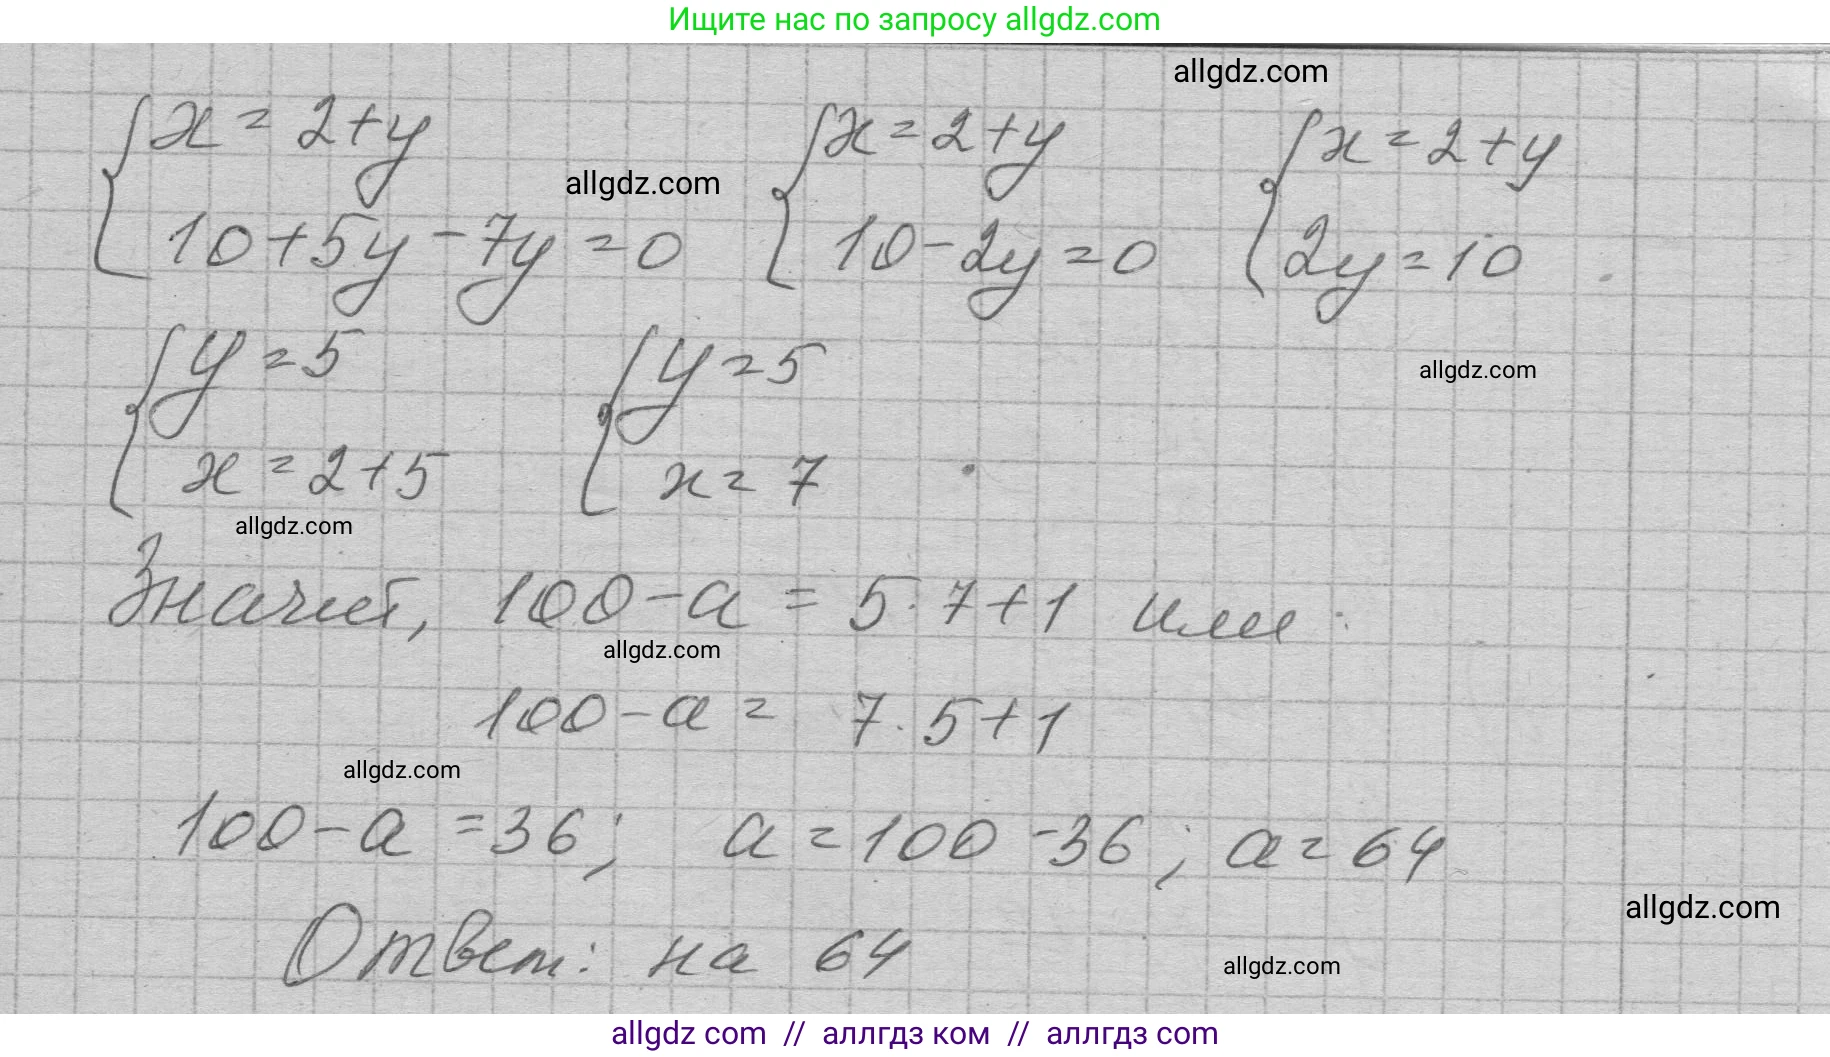 Ищите нас по запросу allgdz.com
allgdz.com
{ x = 2+y { x = 2+y { x = 2+y
10+5y-7y=0 10-2y=0 2y=10
allgdz.com
{ y=5 { y=5
x=2+5 x=7
allgdz.com
allgdz.com
Значит, 100-a = 5·7+1 или
allgdz.com
100-a = 7·5+1
allgdz.com
100-a =36; a=100-36; a=64
allgdz.com
Ответ: на 64
allgdz.com
allgdz com // аллгдз ком // аллгдз com